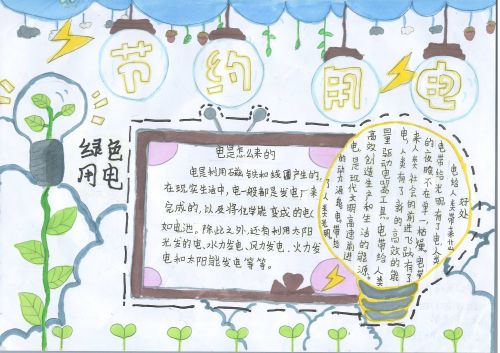 节约用电
绿色
用电
电是怎么来的
电是利用磁铁和线圈产生的,
在现实生活中,电一般都是发电厂来
完成的,以及将化学能变成的电
如电池。除此之外,还有利用太阳
光发的电、水力发电、风力发电、火力发
电和太阳能发电等等。
电给人类带来
好处
电带给光明,有了电人类
的夜晚不在单一枯燥,电带
来人类社会的前进飞跃,有了
电,人类有了新的高效的能
量驱动电器工具,电带给人类
高效创造生产和生活的能源。
电是现代文明高速前进
的动力源,电带给
了人类光明